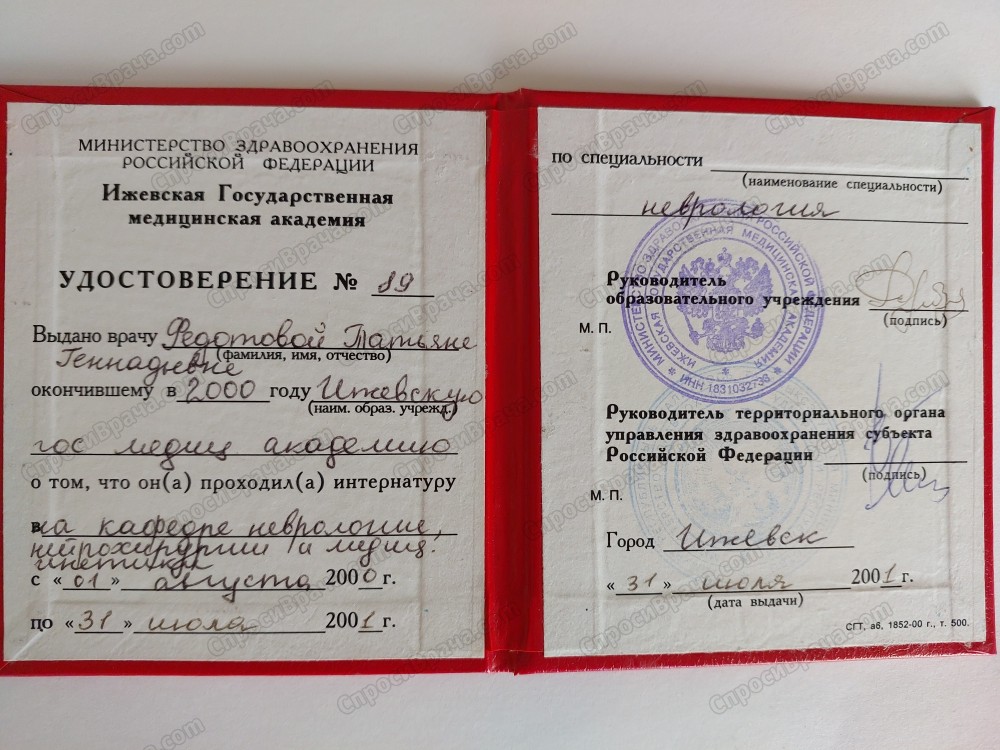 МИНИСТЕРСТВО ЗДРАВООХРАНЕНИЯ
РОССИЙСКОЙ ФЕДЕРАЦИИ
Ижевская Государственная
медицинская академия
УДОСТОВЕРЕНИЕ № 89
Выдано врачу Федотовой Татьяне
(фамилия, имя, отчество)
Геннадьевне
окончившему в 2000 году Ижевскую
(наим. образ. учрежд.)
гос медиц академию
о том, что он(а) проходил(а) интернатуру
на кафедре неврологии,
нейрохирургии и медиц.
генетики
с «01» августа 2000 г.
по «31» июля 2001 г.
по специальности
(наименование специальности)
неврология
Руководитель
образовательного учреждения
(подпись)
М. П.
Руководитель территориального органа
управления здравоохранения субъекта
Российской Федерации
(подпись)
М. П.
Город Ижевск
«31» июля 2001 г.
(дата выдачи)
СГТ, аб, 1852-00 г., т. 500.
МИНИСТЕРСТВО ЗДРАВООХРАНЕНИЯ РОССИЙСКОЙ ФЕДЕРАЦИИ
ИЖЕВСКАЯ ГОСУДАРСТВЕННАЯ МЕДИЦИНСКАЯ АКАДЕМИЯ
ИНН 1831032736
СпросиВрача.com